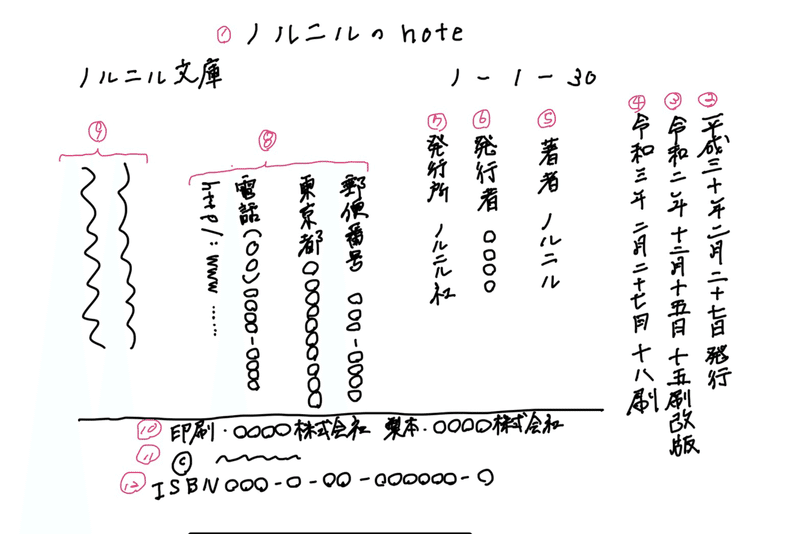 ① ノルニルのnote
ノルニル文庫
ノ-1-30
② 平成三十年二月二十七日発行
③ 令和二年十二月十五日十五刷改版
④ 令和三年二月二十七日十八刷
⑤ 著者 ノルニル
⑥ 発行者 〇〇〇〇
⑦ 発行所 ノルニル社
⑧
郵便番号 〇〇〇-〇〇〇〇
東京都〇〇〇〇〇〇〇〇
電話(〇〇)〇〇〇〇-〇〇〇〇
http/:www ……
⑨
⑩ 印刷・〇〇〇〇株式会社 製本・〇〇〇〇株式会社
⑪ ©
⑫ ISBN〇〇〇-〇-〇〇-〇〇〇〇〇〇-〇